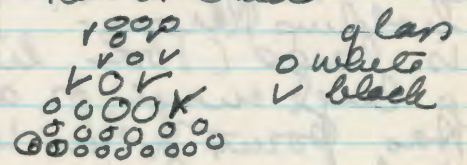 glass
o white
✓ black